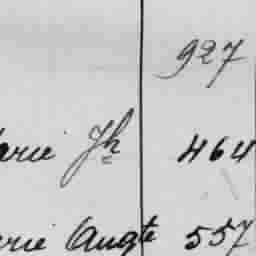 927
arie Jh 464
rie Augte 557